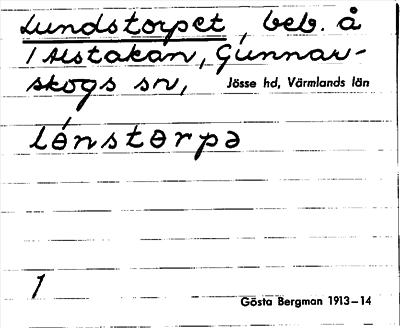 Lundstorpet, beb. å
1 Alstakan, Gunnar-
skogs sn, Jösse hd, Värmlands län
lɵ́nstɵrpə
1
Gösta Bergman 1913–14